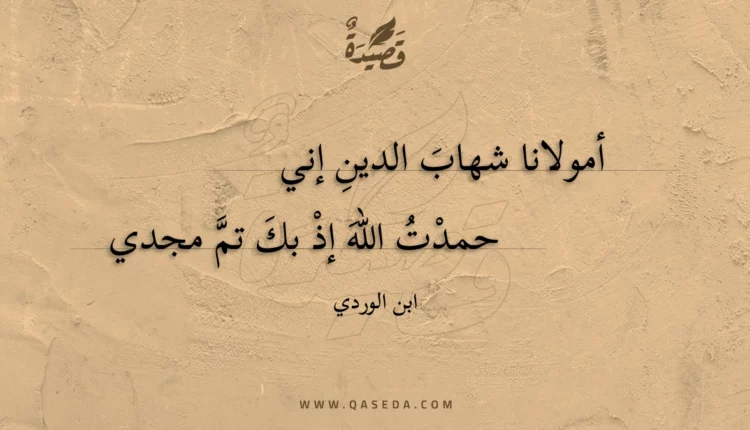 قَصِيدَةٌ
أمولانا شهابَ الدينِ إني
حمدْتُ اللهَ إذْ بكَ تمَّ مجدي
ابن الوردي
WWW.QASEDA.COM